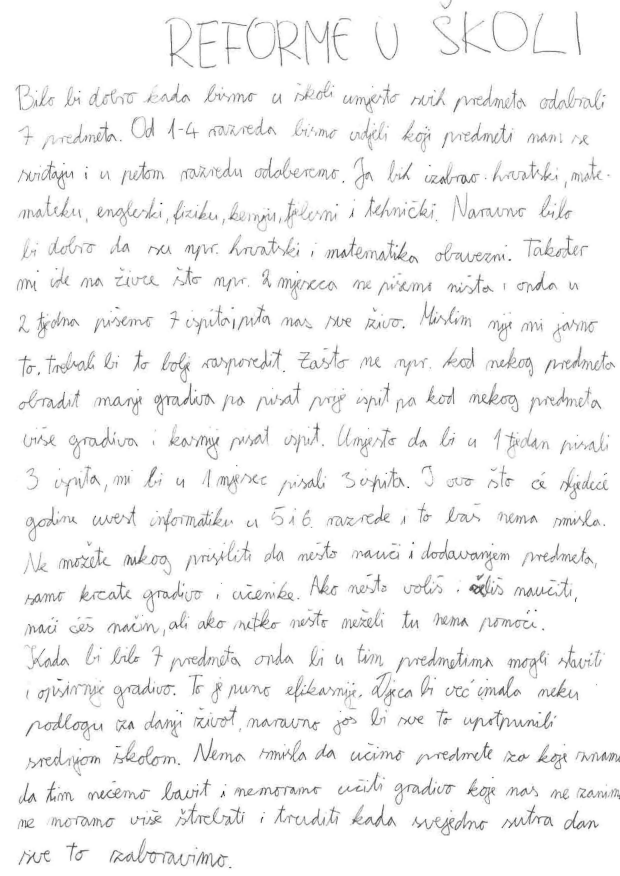 REFORME U ŠKOLI
Bilo bi dobro kada bismo u školi umjesto svih predmeta odabrali
7 predmeta. Od 1-4 razreda bismo vidjeli koji predmeti nam se
sviđaju i u petom razredu odaberemo. Ja bih izabrao hrvatski, mate-
matiku, engleski, fiziku, kemiju, tjelesni i tehnički. Naravno bilo
bi dobro da su npr. hrvatski i matematika obavezni. Također
mi ide na živce što npr. 2 mjeseca ne pišemo ništa i onda u
2 tjedna pišemo 7 ispita, pita nas sve živo. Mislim nije mi jasno
to, trebali bi to bolje rasporedit. Zašto ne npr. kod nekog predmeta
obradit manje gradiva pa pisat prije ispit pa kod nekog predmeta
više gradiva i kasnije pisat ispit. Umjesto da bi u 1 tjedan pisali
3 ispita, mi bi u 1 mjesec pisali 3 ispita. I ovo što će sljedeće
godine uvest informatiku u 5 i 6. razrede i to baš nema smisla.
Ne možete nikog prisiliti da nešto nauči i dodavanjem predmeta,
samo krcate gradivo i učenike. Ako nešto voliš i želiš naučiti,
naći ćeš način, ali ako netko nešto neželi tu nema pomoći.
Kada bi bilo 7 predmeta onda bi u tim predmetima mogli staviti
i opširnije gradivo. To je puno efikasnije. Djeca bi već imala neku
podlogu za danji život, naravno još bi sve to upotpunili
srednjom školom. Nema smisla da učimo predmete za koje znamo
da tim nećemo bavit i nemoramo učiti gradivo koje nas ne zanima
ne moramo više štrebati i truditi kada svejedno sutra dan
sve to zaboravimo.